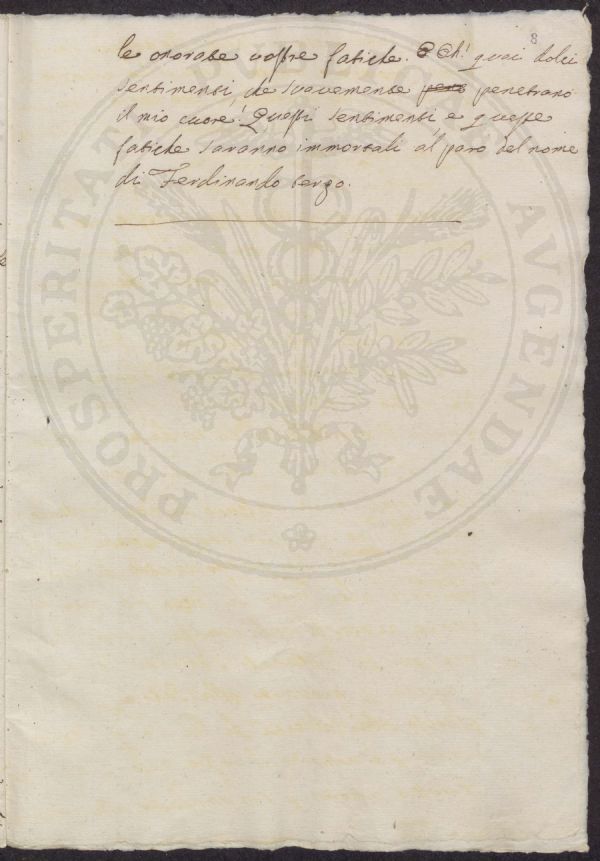 8
le onorate vostre fatiche. Eh! quai dolci
sentimenti, che soavemente penetrano
il mio cuore! Questi sentimenti e queste
fatiche saranno immortali al paro del nome
di Ferdinando terzo.
PROSPERITATI PUBLICAE AVGENDAE